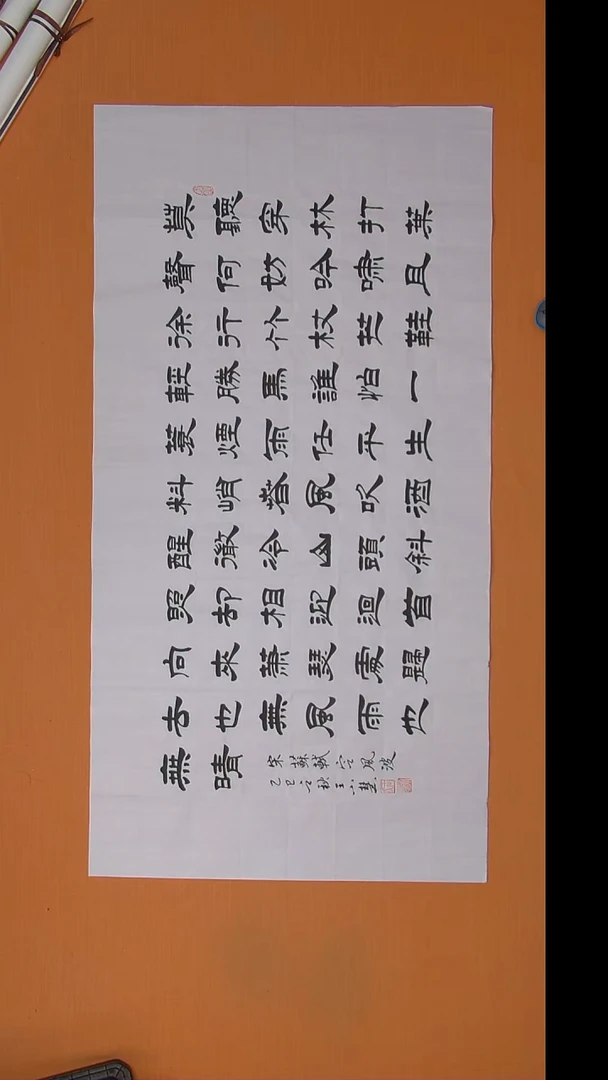 莫聽穿林打葉
聲何妨吟嘯且
徐行竹杖芒鞋
輕勝馬誰怕一
蓑煙雨任平生
料峭春風吹酒
醒微冷山頭斜
照却相迎迴首
向來蕭瑟處歸
去也無風雨也
無晴
宋蘇軾定風波
乙巳秋王小慧